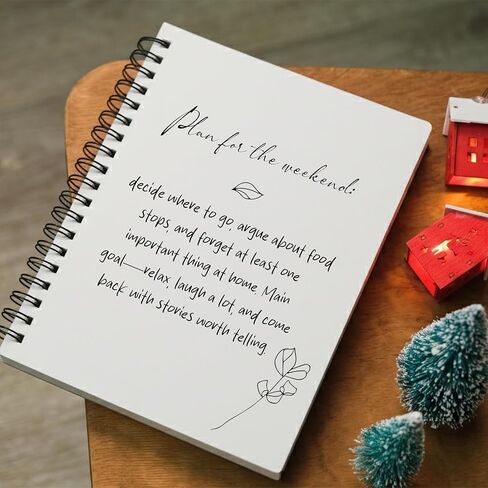 Plan for the weekend:
decide where to go, argue about food
stops, and forget at least one
important thing at home. Main
goal—relax, laugh a lot, and come
back with stories worth telling.